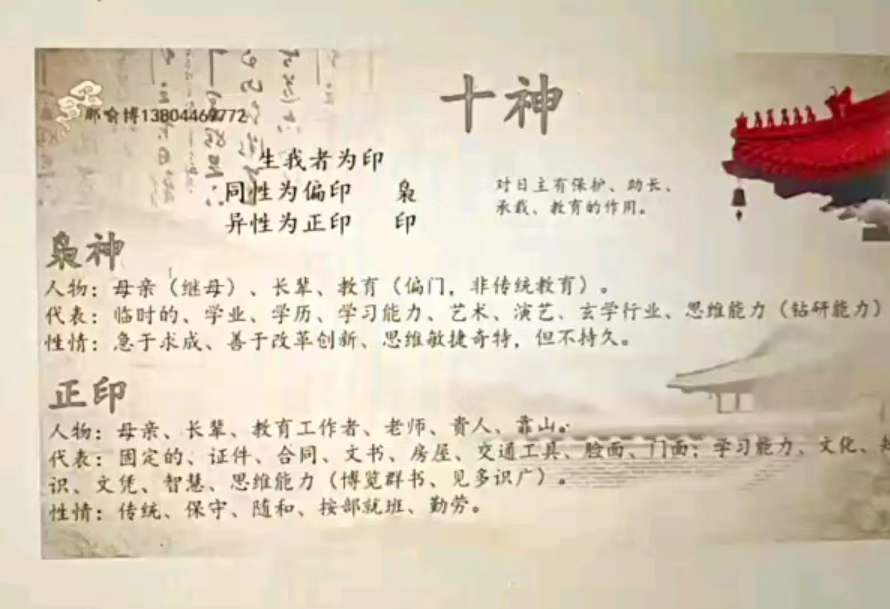 十神
邢俞博13804469772
生我者为印
同性为偏印 枭
异性为正印 印
对日主有保护、助长、
承载、教育的作用。
枭神
人物：母亲（继母）、长辈、教育（偏门，非传统教育）。
代表：临时的、学业、学历、学习能力、艺术、演艺、玄学行业、思维能力（钻研能力）
性情：急于求成、善于改革创新、思维敏捷奇特，但不持久。
正印
人物：母亲、长辈、教育工作者、老师、贵人、靠山。
代表：固定的、证件、合同、文书、房屋、交通工具、脸面、门面；学习能力、文化、知
识、文凭、智慧、思维能力（博览群书、见多识广）。
性情：传统、保守、随和、按部就班、勤劳。